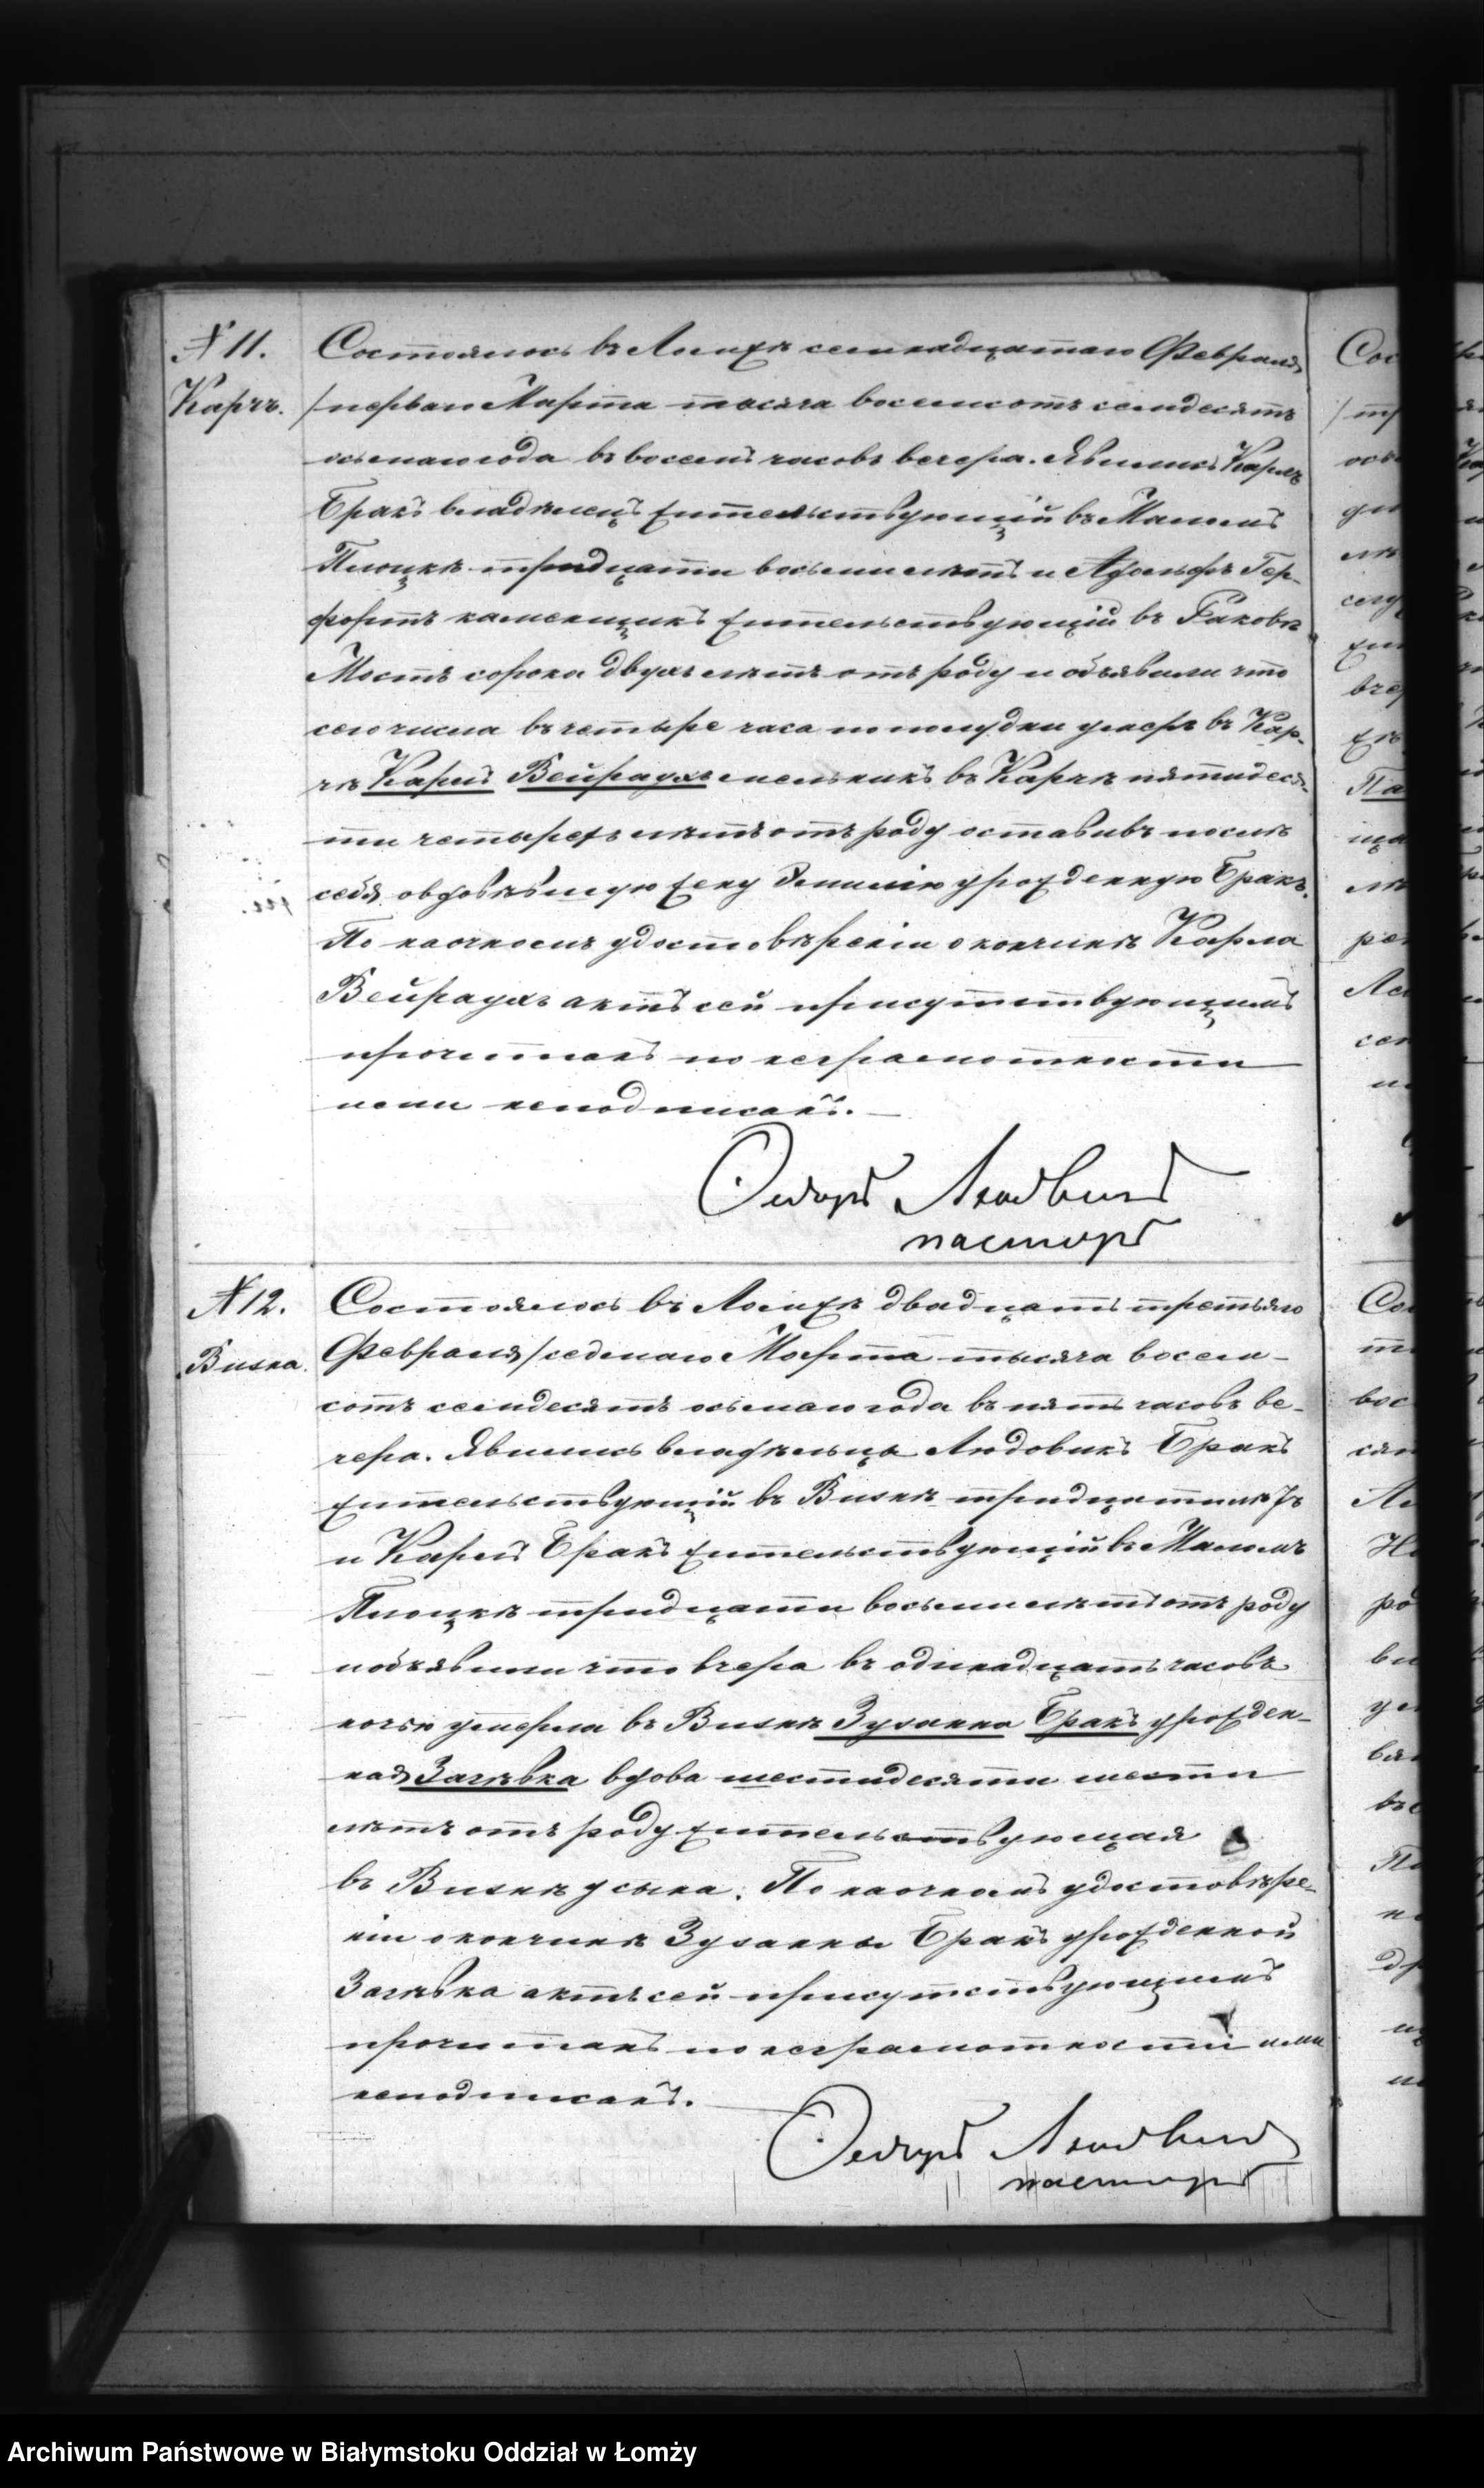 № 11.
Карчъ.
Состоялось въ Ломжѣ семнадцатаго Февраля
/перваго Марта тысяча восемсотъ семдесятъ
осьмаго года въ восемь часовъ вечера. Явились Карлъ
Бракъ владѣлецъ жительствующій въ Маломъ
Плоцкѣ тридцати восьми лѣтъ и Адольфъ Гер-
фортъ каменщикъ жительствующій въ Раковѣ
Мостъ сорока двухъ лѣтъ отъ роду и объявили что
сего числа въ четыре часа по полудни умеръ въ Кар-
чѣ Карлъ Вейраухъ мельникъ въ Карчѣ пятидеся-
ти четырехъ лѣтъ отъ роду оставивъ послѣ
себя овдовѣвшую жену Эмилію урожденную Бракъ.
По наочномъ удостовѣреніи о кончинѣ Карла
Вейраухъ актъ сей присутствующимъ
прочитанъ по неграмотности
ними неподписанъ.
пасторъ
№ 12.
Виска.
Состоялось въ Ломжѣ двадцать третьяго
Февраля/седмаго Марта тысяча восем-
сотъ семдесятъ осьмаго года въ пять часовъ ве-
чера. Явились владѣльцы Людовикъ Бракъ
жительствующій въ Вискѣ тридцати лѣтъ
и Карлъ Бракъ жительствующій въ Маломъ
Плоцкѣ тридцати восьми лѣтъ отъ роду
и объявили что вчера въ одинадцать часовъ
ночи умерла въ Вискѣ Зузанна Бракъ урожден-
ная Загѣвка вдова шестидесяти шести
лѣтъ отъ роду жительствующая
въ Вискѣ у сына. По наочномъ удостовѣре-
ніи о кончинѣ Зузанны Бракъ урожденной
Загѣвка актъ сей присутствующимъ
прочитанъ по неграмотности ими
неподписанъ.
пасторъ
Archiwum Państwowe w Białymstoku Oddział w Łomży